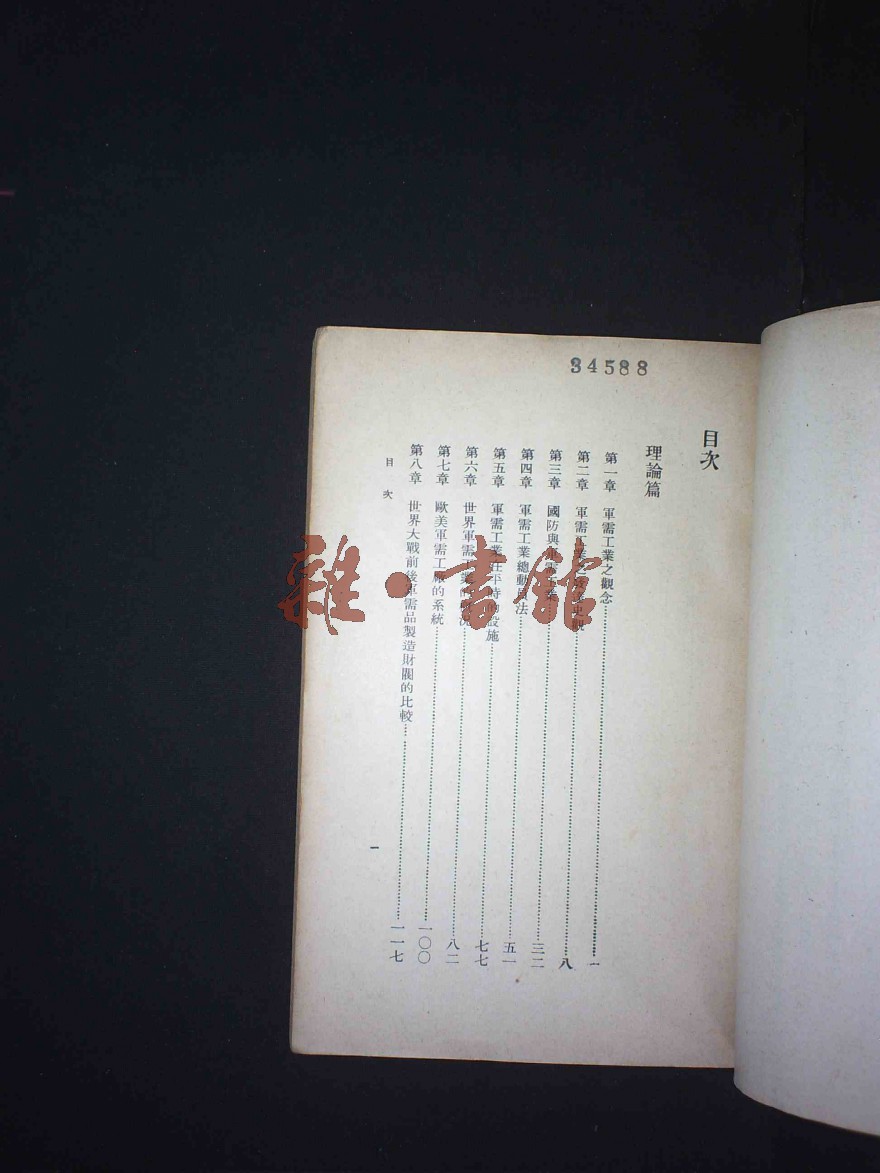 34588
目次
理論篇
第一章 軍需工業之觀念 一
第二章 軍需工業之 史觀 八
第三章 國防與軍需工業 三二
第四章 軍需工業總動員法 五一
第五章 軍需工業在平時的設施 七七
第六章 世界軍需工業的概況 八二
第七章 歐美軍需工廠的系統 一〇〇
第八章 世界大戰前後軍需品製造財閥的比較 一一七
目次
一
雜·書館